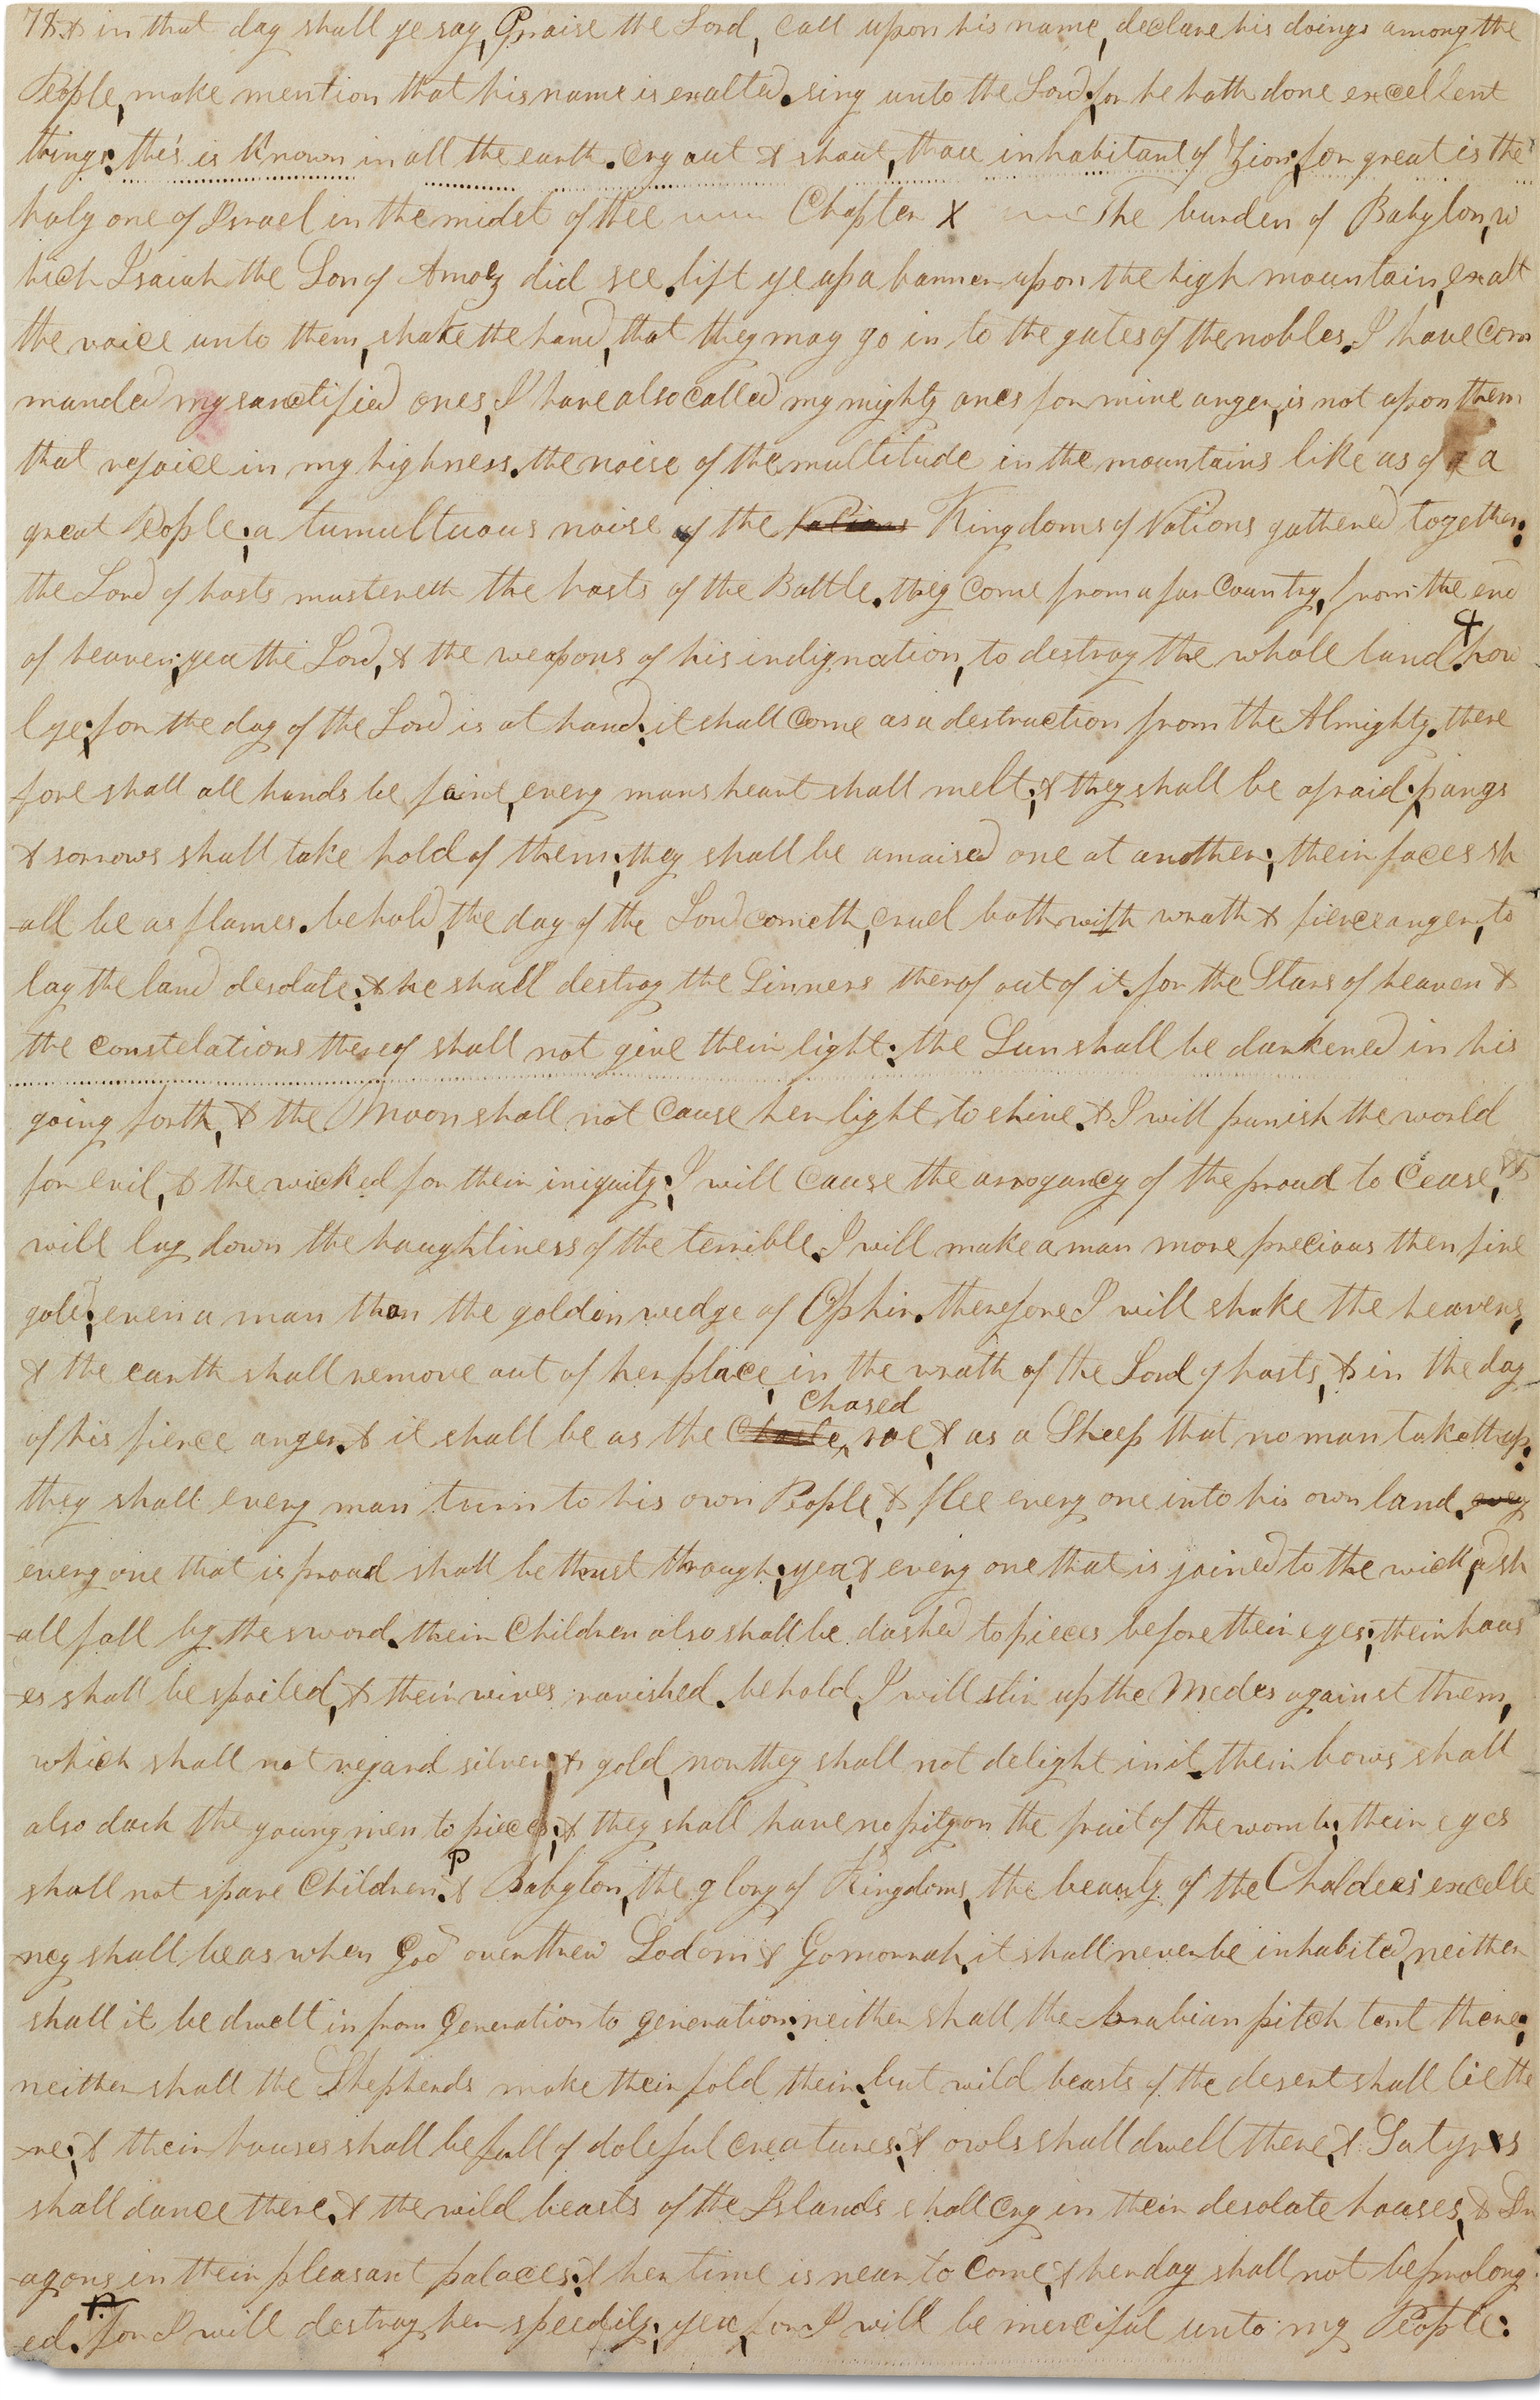 78 & in that day shall ye say, Praise the Lord, call upon his name, declare his doings among the
People, make mention that his name is exalted. sing unto the Lord; for he hath done excellent
things: this is Known in all the earth. Cry out & shout, thou inhabitant of Zion; for great is the
holy one of Israel in the midst of thee Chapter X The burden of Babylon, w
hich Isaiah the Son of Amoz did see. lift ye up a banner upon the high mountain, exalt
the voice unto them, shake the hand, that they may go in to the gates of the nobles. I have com
manded my sanctified ones, I have also called my mighty ones for mine anger, is not upon them
that rejoice in my highness. the noise of the multitude in the mountains like as of a
great People; a tumultuous noise of the Nations Kingdoms of Nations gathered together:
the Lord of hosts mustereth the hosts of the Battle. they come from a far Country, from the end
of heaven; yea the Lord, & the weapons of his indignation, to destroy the whole land. how
l ye; for the day of the Lord is at hand; it shall come as a destruction from the Almighty. there
fore shall all hands be faint, every mans heart shall melt; & they shall be afraid; pangs
& sorrows shall take hold of them; they shall be amaised one at another; their faces sh
-all be as flames. behold, the day of the Lord cometh, cruel both with wrath & fierce anger, to
lay the land desolate; & he shall destroy the Sinners therof out of it. for the Stars of heaven &
the constelations thereof shall not give their light; the Sun shall be darkened in his
going forth, & the Moon shall not cause her light to shine. & I will punish the world
for evil, & the wicked for their iniquity; I will cause the arrogancy of the proud to cease, &
will lay down the haughtiness of the terrible. I will make a man more precious then fine
gold; even a man than the golden wedge of Ophir. therefore I will shake the heavens,
& the earth shall remove out of her place, in the wrath of the Lord of hosts, & in the day
chased
of his fierce anger. & it shall be as the Chaste ^ roe, & as a Sheep that no man taketh up;
they shall every man turn to his own People, & flee every one into his own land. evey
every one that is proud shall be thrust through; yea, & every one that is joined to the wicked, sh
-all fall by the sword. their Children also shall be dashed to pieces before their eyes; their hous
-es shall be spoiled, & their wives ravished. behold, I will stir up the Medes against them,
which shall not regard silver, & gold, nor they shall not delight in it. their bows shall
also dash the young men to pieces; & they shall have no pity on the fruit of the womb; their eyes
shall not spare Children. P & Babylon, the glory of Kingdoms, the beauty of the Chaldees' excelle
-ncy shall be as when God overthrew Sodom & Gomorrah. it shall never be inhabited, neither
shall it be dwelt in from generation to generation; neither shall the Arabian pitch tent there;
neither shall the Shepherds make their fold their; but wild beasts of the desert shall lie the
-re; & their houses shall be full of doleful creatures; & owls shall dwell there, & Satyrs
shall dance there. & the wild beasts of the Islands shall cry in their desolate houses, & Dr
-agons in their pleasant palaces; & her time is near to come, & her day shall not be prolong
ed. for I will destroy her speedily; yea, for I will be merciful unto my People: